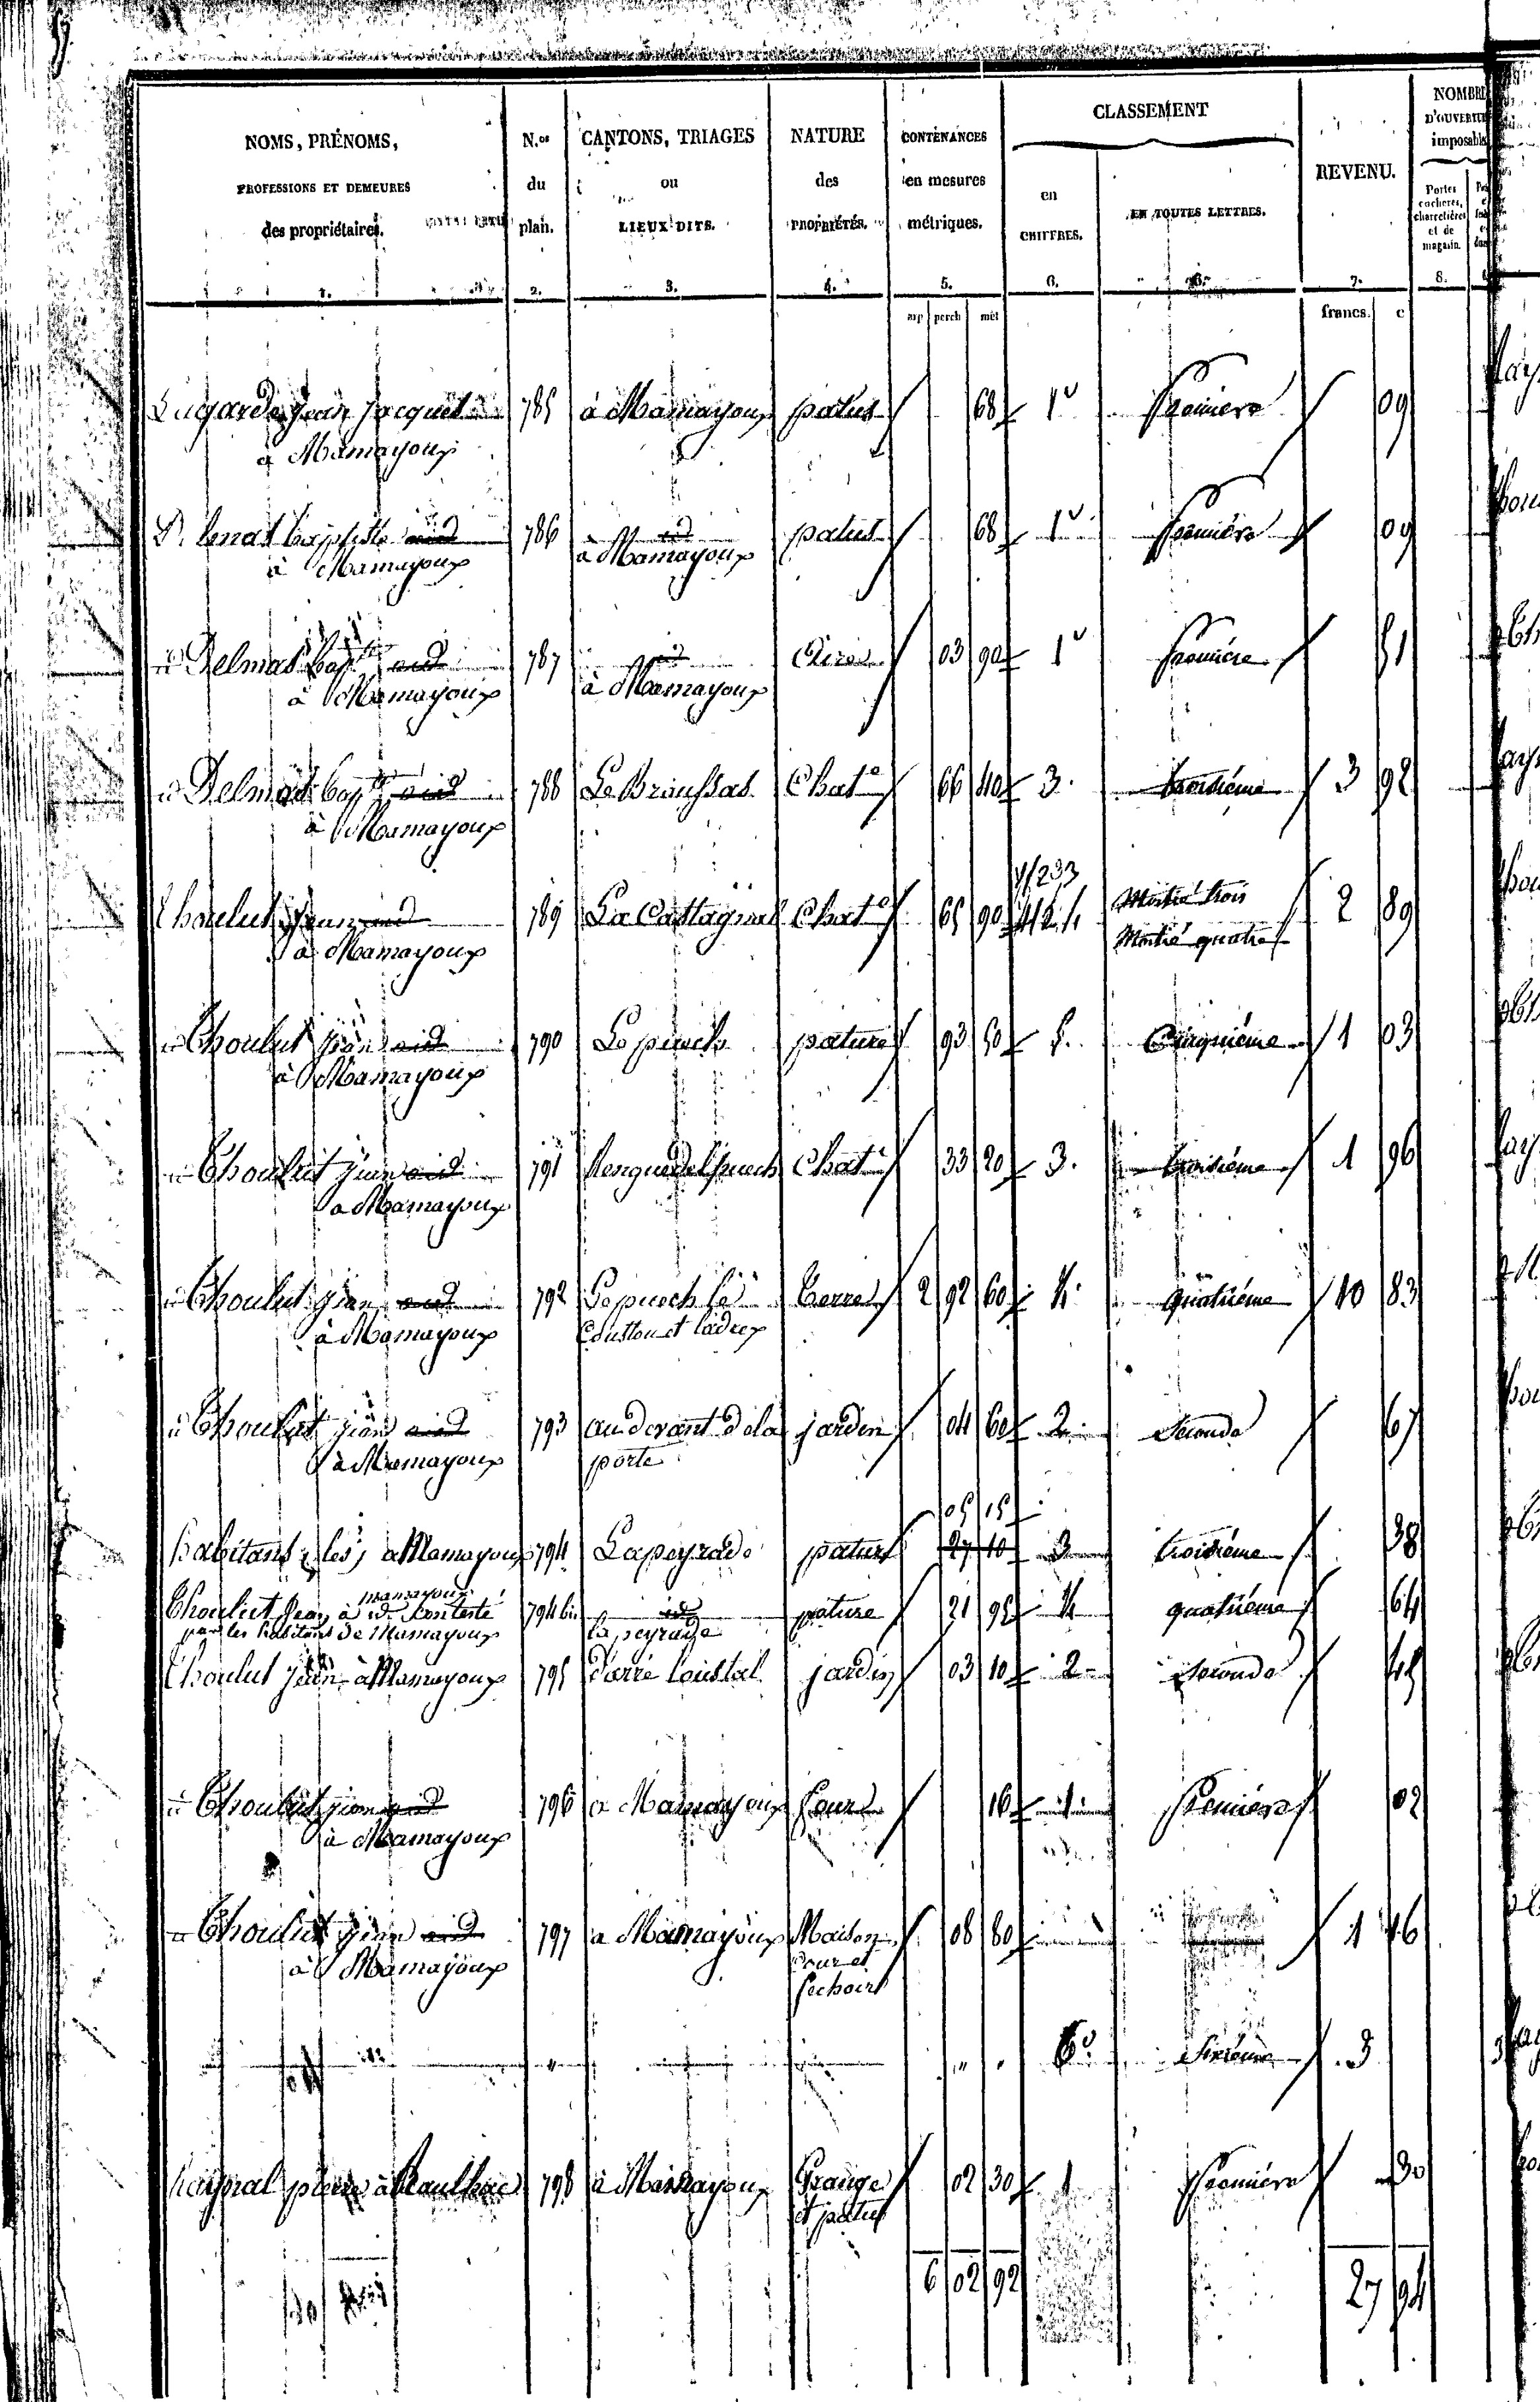 NOMS, PRÉNOMS, PROFESSIONS ET DEMEURES des propriétaires. 1.
N.os du plan. 2.
CANTONS, TRIAGES ou LIEUX DITS. 3.
NATURE des PROPRIÉTÉS. 4.
CONTENANCES en mesures métriques. 5.
CLASSEMENT
en CHIFFRES. 6.
EN TOUTES LETTRES.
REVENU. 7.
NOMBRE D'OUVERTU imposable
Portes cochères, charretières et de magasin. 8.
arp perch mèt
francs. c
Lagarde Jean Jacques 785 à Mamayoux patus 68 1 Première 09
à Mamayoux
Delmas Baptiste 786 id patus 68 1 Première 09
à Mamayoux à Mamayoux
Delmas Bapte 787 id Aire 03 90 1 Première 51
à Mamayoux à Mamayoux
Delmas Bapte 788 Le Broussas Chate 66 40 3. troisième 3 92
à Mamayoux
Choulut Jean 789 La Castagnal Chate 65 90 1/2 3 1/2 4 Moitié trois Moitié quatre 2 89
à Mamayoux
Choulut jean 790 Le puech pature 93 50 5. Cinquième 1 03
à Mamayoux
Choulut jean 791 Chate 33 20 3. troisième 1 96
à Mamayoux
Choulut jean 792 Le puech le Terre 2 92 60 4. quatrième 10 83
à Mamayoux
Choulut jean 793 au devant de la jardin 04 60 2. Seconde 67
à Mamayoux porte
05 15
habitans (les) à Mamayoux 794 Lapeyrade pature 27 10 3 troisième 38
mamayoux
Choulut Jean à id contesté 794 bis id pature 21 95 4 quatrième 64
par les habitans de Mamayoux la peyrade
Choulut jean à Mamayoux 795 Darré Loustal jardin 03 10 2 Seconde 45
Choulut jean 796 à Mamayoux four 16 1 Première 02
à Mamayoux
Choulut jean 797 à Mamayoux Maison 08 80 1 46
à Mamayoux cour et
sechoir
" " " 6e Sixième 3
pierre à Raulhac 798 à Mamayoux Grange 02 30 1 Première 30
et patus
6 02 92 27 94